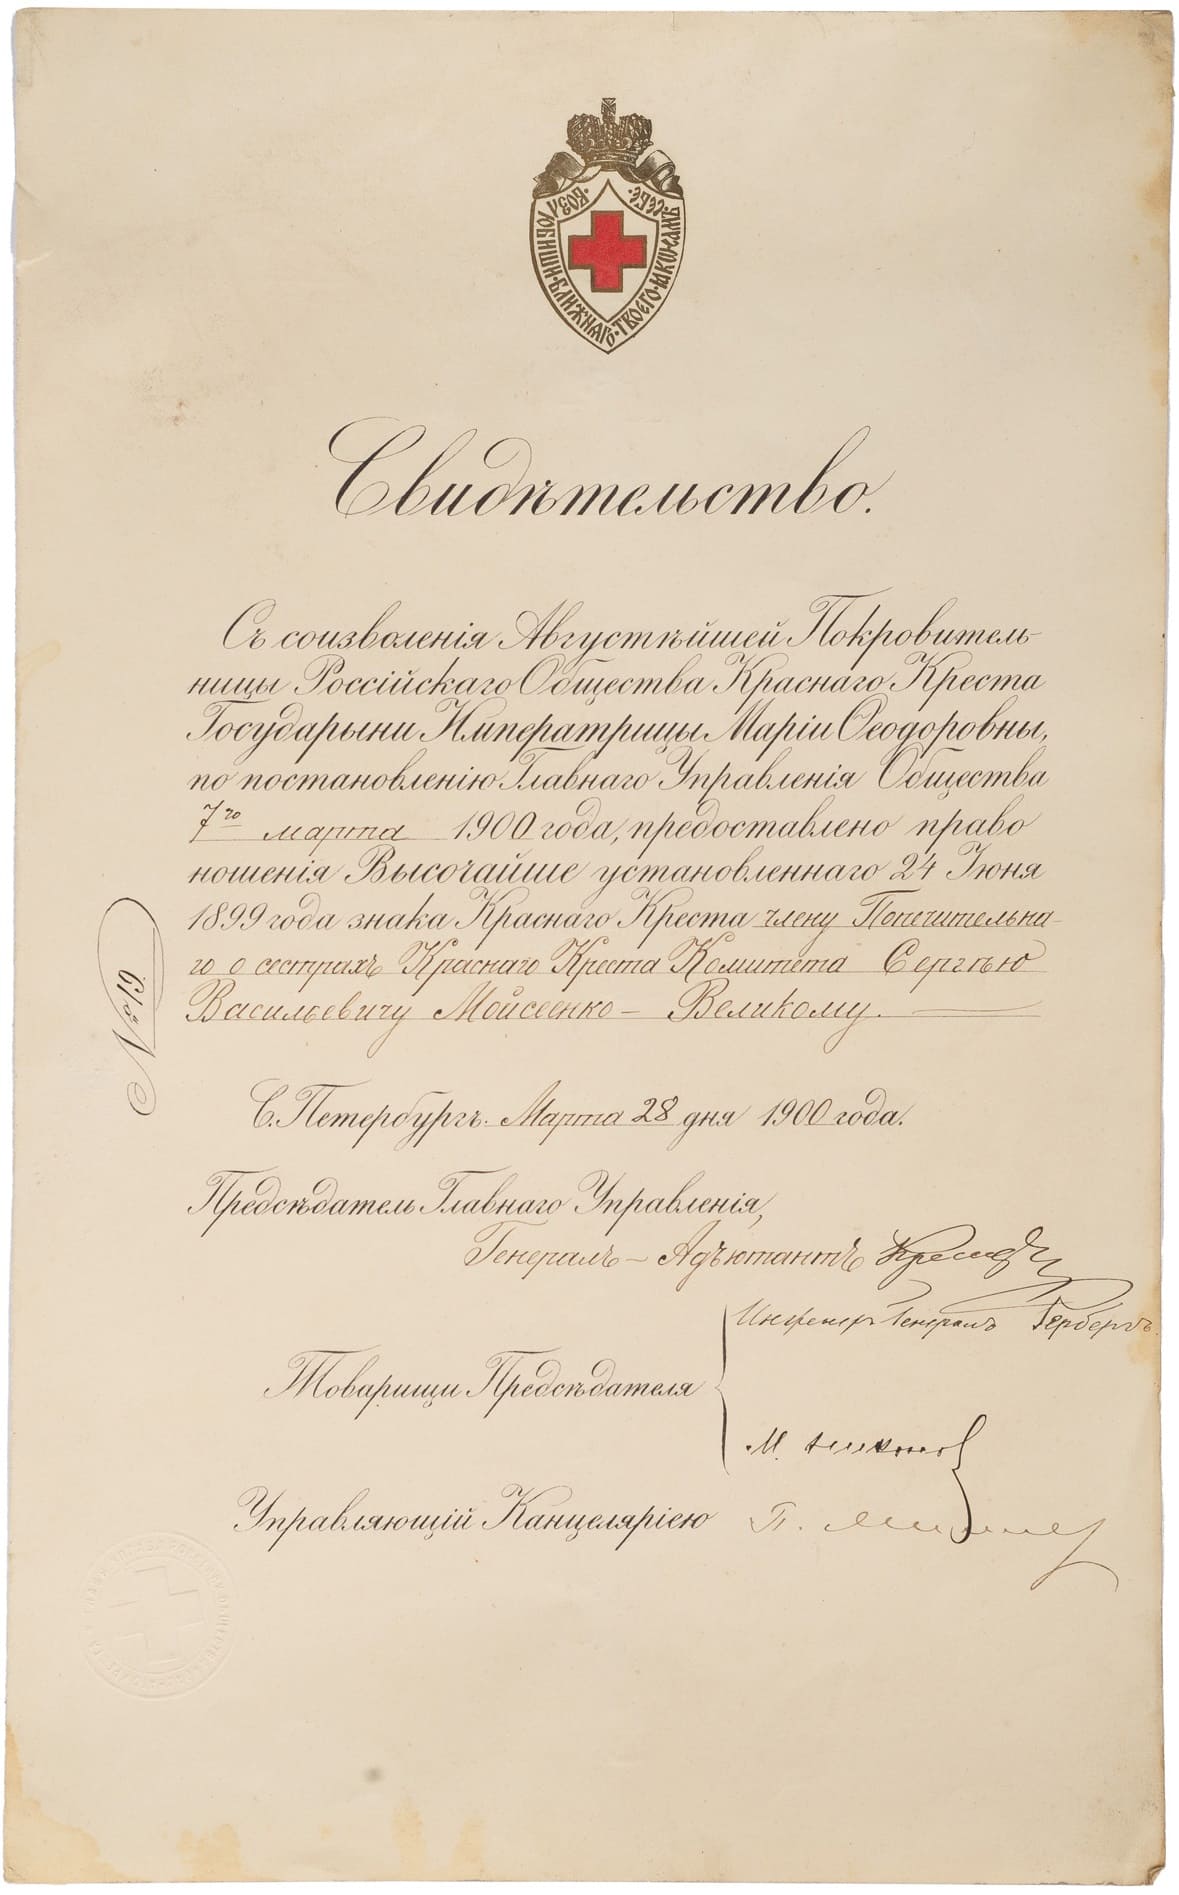 ВОЗЛЮБИШИ·БЛИЖНЯГО·ТВОЕГО·ЯКОЖЕ·САМЪ·СЕБЕ
Свидѣтельство.
Съ соизволенія Августѣйшей Покровитель-
ницы Россійскаго Общества Краснаго Креста
Государыни Императрицы Маріи Ѳеодоровны,
по постановленію Главнаго Управленія Общества
7го марта 1900 года, предоставлено право
ношенія Высочайше установленнаго 24 Іюня
1899 года знака Краснаго Креста члену Попечительна-
го о сестрахъ Краснаго Креста Комитета Сергѣю
Васильевичу Мойсеенко-Великому.
№
С. Петербургъ. Марта 28 дня 1900 года.
Предсѣдатель Главнаго Управленія,
Генералъ-Адъютантъ
Инженеръ Генералъ Герберъ
Товарищи Предсѣдателя
М.
Управляющій Канцеляріею П.